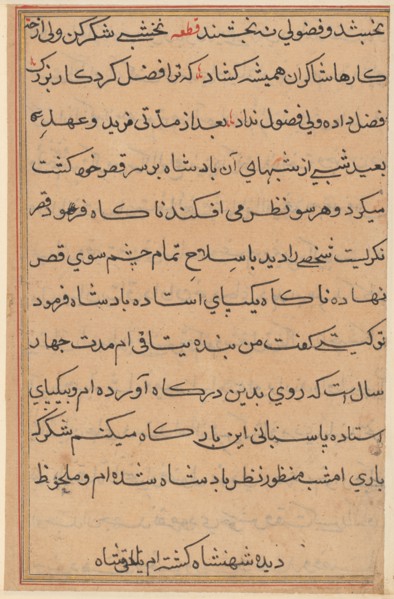 بخشد و فضولی نه بخشند قطعه نخشبی شکر کن ولی از حق
کارها شاکران همیشه کشاد که ترا فضل کرد کار بزرک
فضل داده ولی فضول نداد بعد از مدتی مزید و عهدی
بعید شبی از شبهای آن بادشاه بر سر قصر خود کشت
میکرد و هر سو نظر می افکند ناکاه فرود قصر
نکریست شخصی را دید با سلاح تمام چشم سوی قصر
نهاده ناکاه بیکپای استاده بادشاه فرمود
تو کیستی کفت من بنده یتاقی ام مدت چهار
سال است که روی بدین درکاه آورده ام و بیکپای
استاده پاسبانی این بارکاه میکنم شکر که
باری امشب منظور نظر بادشاه شده ام و ملحوظ
دیده شهنشاه کشته ام